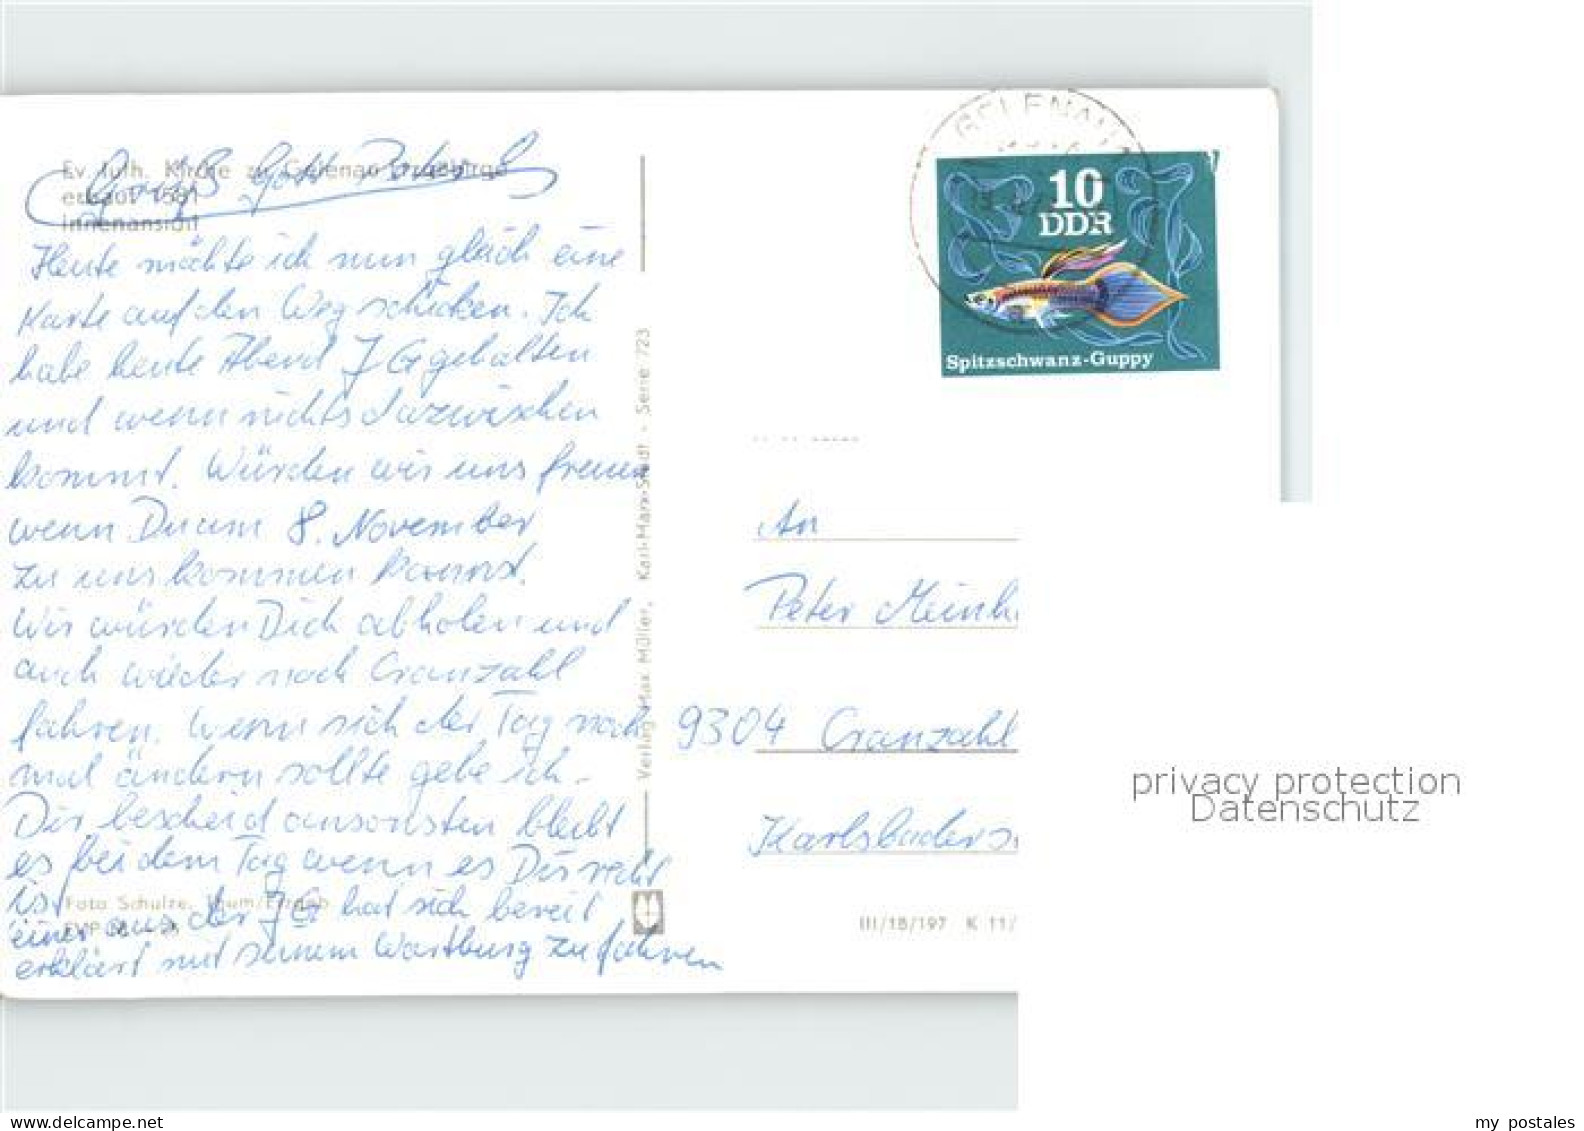 Ev. luth. Kirche zu Gelenau Erzgebirge
erbaut 1581
Innenansicht
Grüß Gott
Heute möchte ich nun gleich eine
Karte auf den Weg schicken. Ich
habe heute Abend JG gehalten
und wenn nichts dazwischen
kommt. Würden wir uns freuen
wenn Du am 8. November
zu uns kommen kannst.
Wir würden Dich abholen und
auch wieder nach Cranzahl
fahren. Wenn sich der Tag noch
mal ändern sollte gebe ich
Dir bescheid ansonsten bleibt
es bei dem Tag wenn es Dir recht
ist
einer aus der JG hat sich bereit
erklärt mit seinem Wartburg zu fahren
Foto Schulze, Thum/Erzgeb
Verlag Max Müller, Karl-Marx-Stadt - Serie 723
GELENAU
10
DDR
Spitzschwanz-Guppy
An
Peter
9304 Cranzahl
III/18/197 K 11/
privacy protection
Datenschutz
my postales